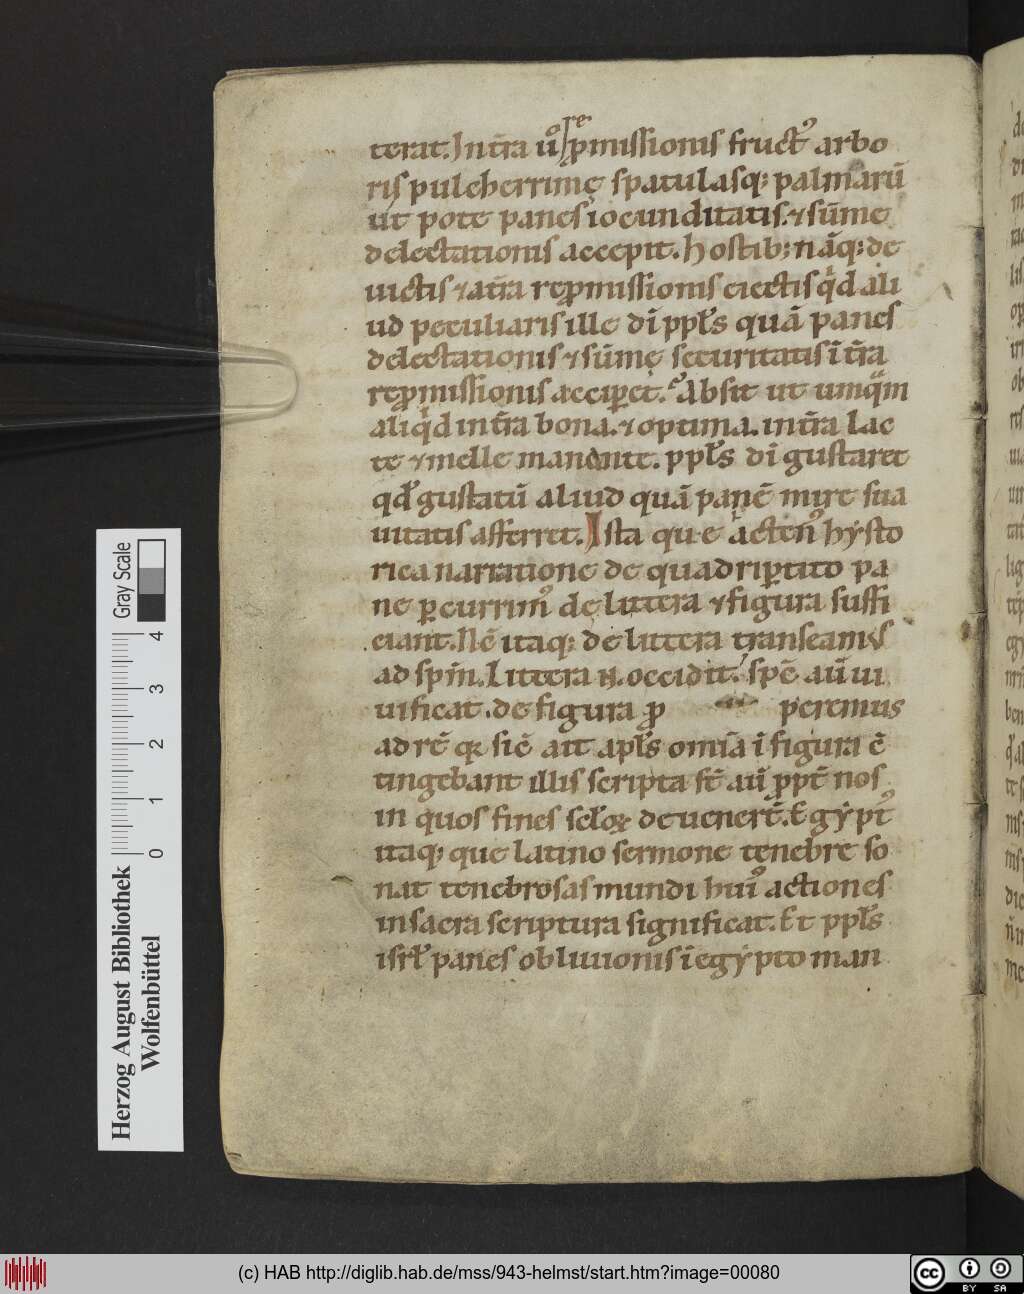 terat. In tr̄a ū͛ re
p̱missionis fruct᷒ arbo
ris pulcherrimę spatulasq; palmarū
ut pote panes iocunditatis. ⁊ sūme
delectationis accepit. Hostib; nāq; de
uictis ⁊ a tr̄a rep̱missionis eiectis qͥd ali
ud peculiaris ille dī ppl̄s quā panes
delectationis ⁊ sūmę securitatis ī tr̄a
rep̱missionis acciꝑet. Absit ut umqͣm
aliqͥd in tr̄a bona. ⁊ optima. in tr̄a lac
te ⁊ melle manante. ppl̄s dī gustaret
qd̄ gustatū aliud quā panē mire sua
uitatis afferret. Ista que actenꝰ hysto
rica narratione de quadriꝑtito pa
ne ꝑcurrimꝰ de littera ⁊ figura suffi
ciant. Nc̄ itaq; de littera transeamus
ad sp̄m. Littera n̄. occidit. sp̄c̄ aū ui
uificat. de figura ꝓperemus
ad rē qꝛ sic̄ ait apl̄s om̄ia ī figura c̄
tingebant illis scripta st̄ aū ꝓpt̄ nos
in quos fines sc̄loꝝ deuenert̄. Egypt᷒
itaq; que latino sermone tenebre so
nat tenebrosas mundi huiꝰ actiones
in sacra scriptura significat. Et ppl̄s
isrl̄ panes obliuionis ī egypto man
Herzog August Bibliothek
Wolfenbüttel
Gray Scale
0 1 2 3 4
(c) HAB http://diglib.hab.de/mss/943-helmst/start.htm?image=00080
cc BY SA